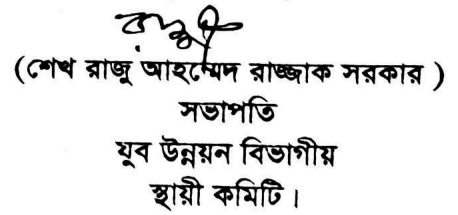 (শেখ রাজু আহম্মেদ রাজ্জাক সরকার )
সভাপতি
যুব উন্নয়ন বিভাগীয়
স্থায়ী কমিটি ।